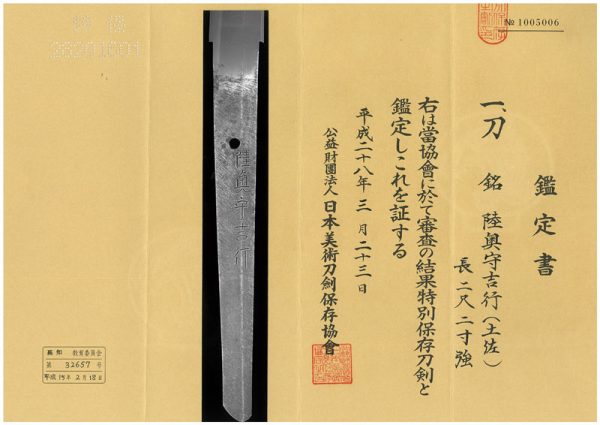 № 1005006
鑑定書
一、刀 銘 陸奥守吉行(土佐)
長 二尺二寸強
右は當協會に於て審査の結果特別保存刀剣と
鑑定しこれを証する
平成二十八年 三月二十三日
公益財團法人 日本美術刀劍保存協會
陸奥守吉行
高知 教育委員会
第 32657 号
平成15年2月18日